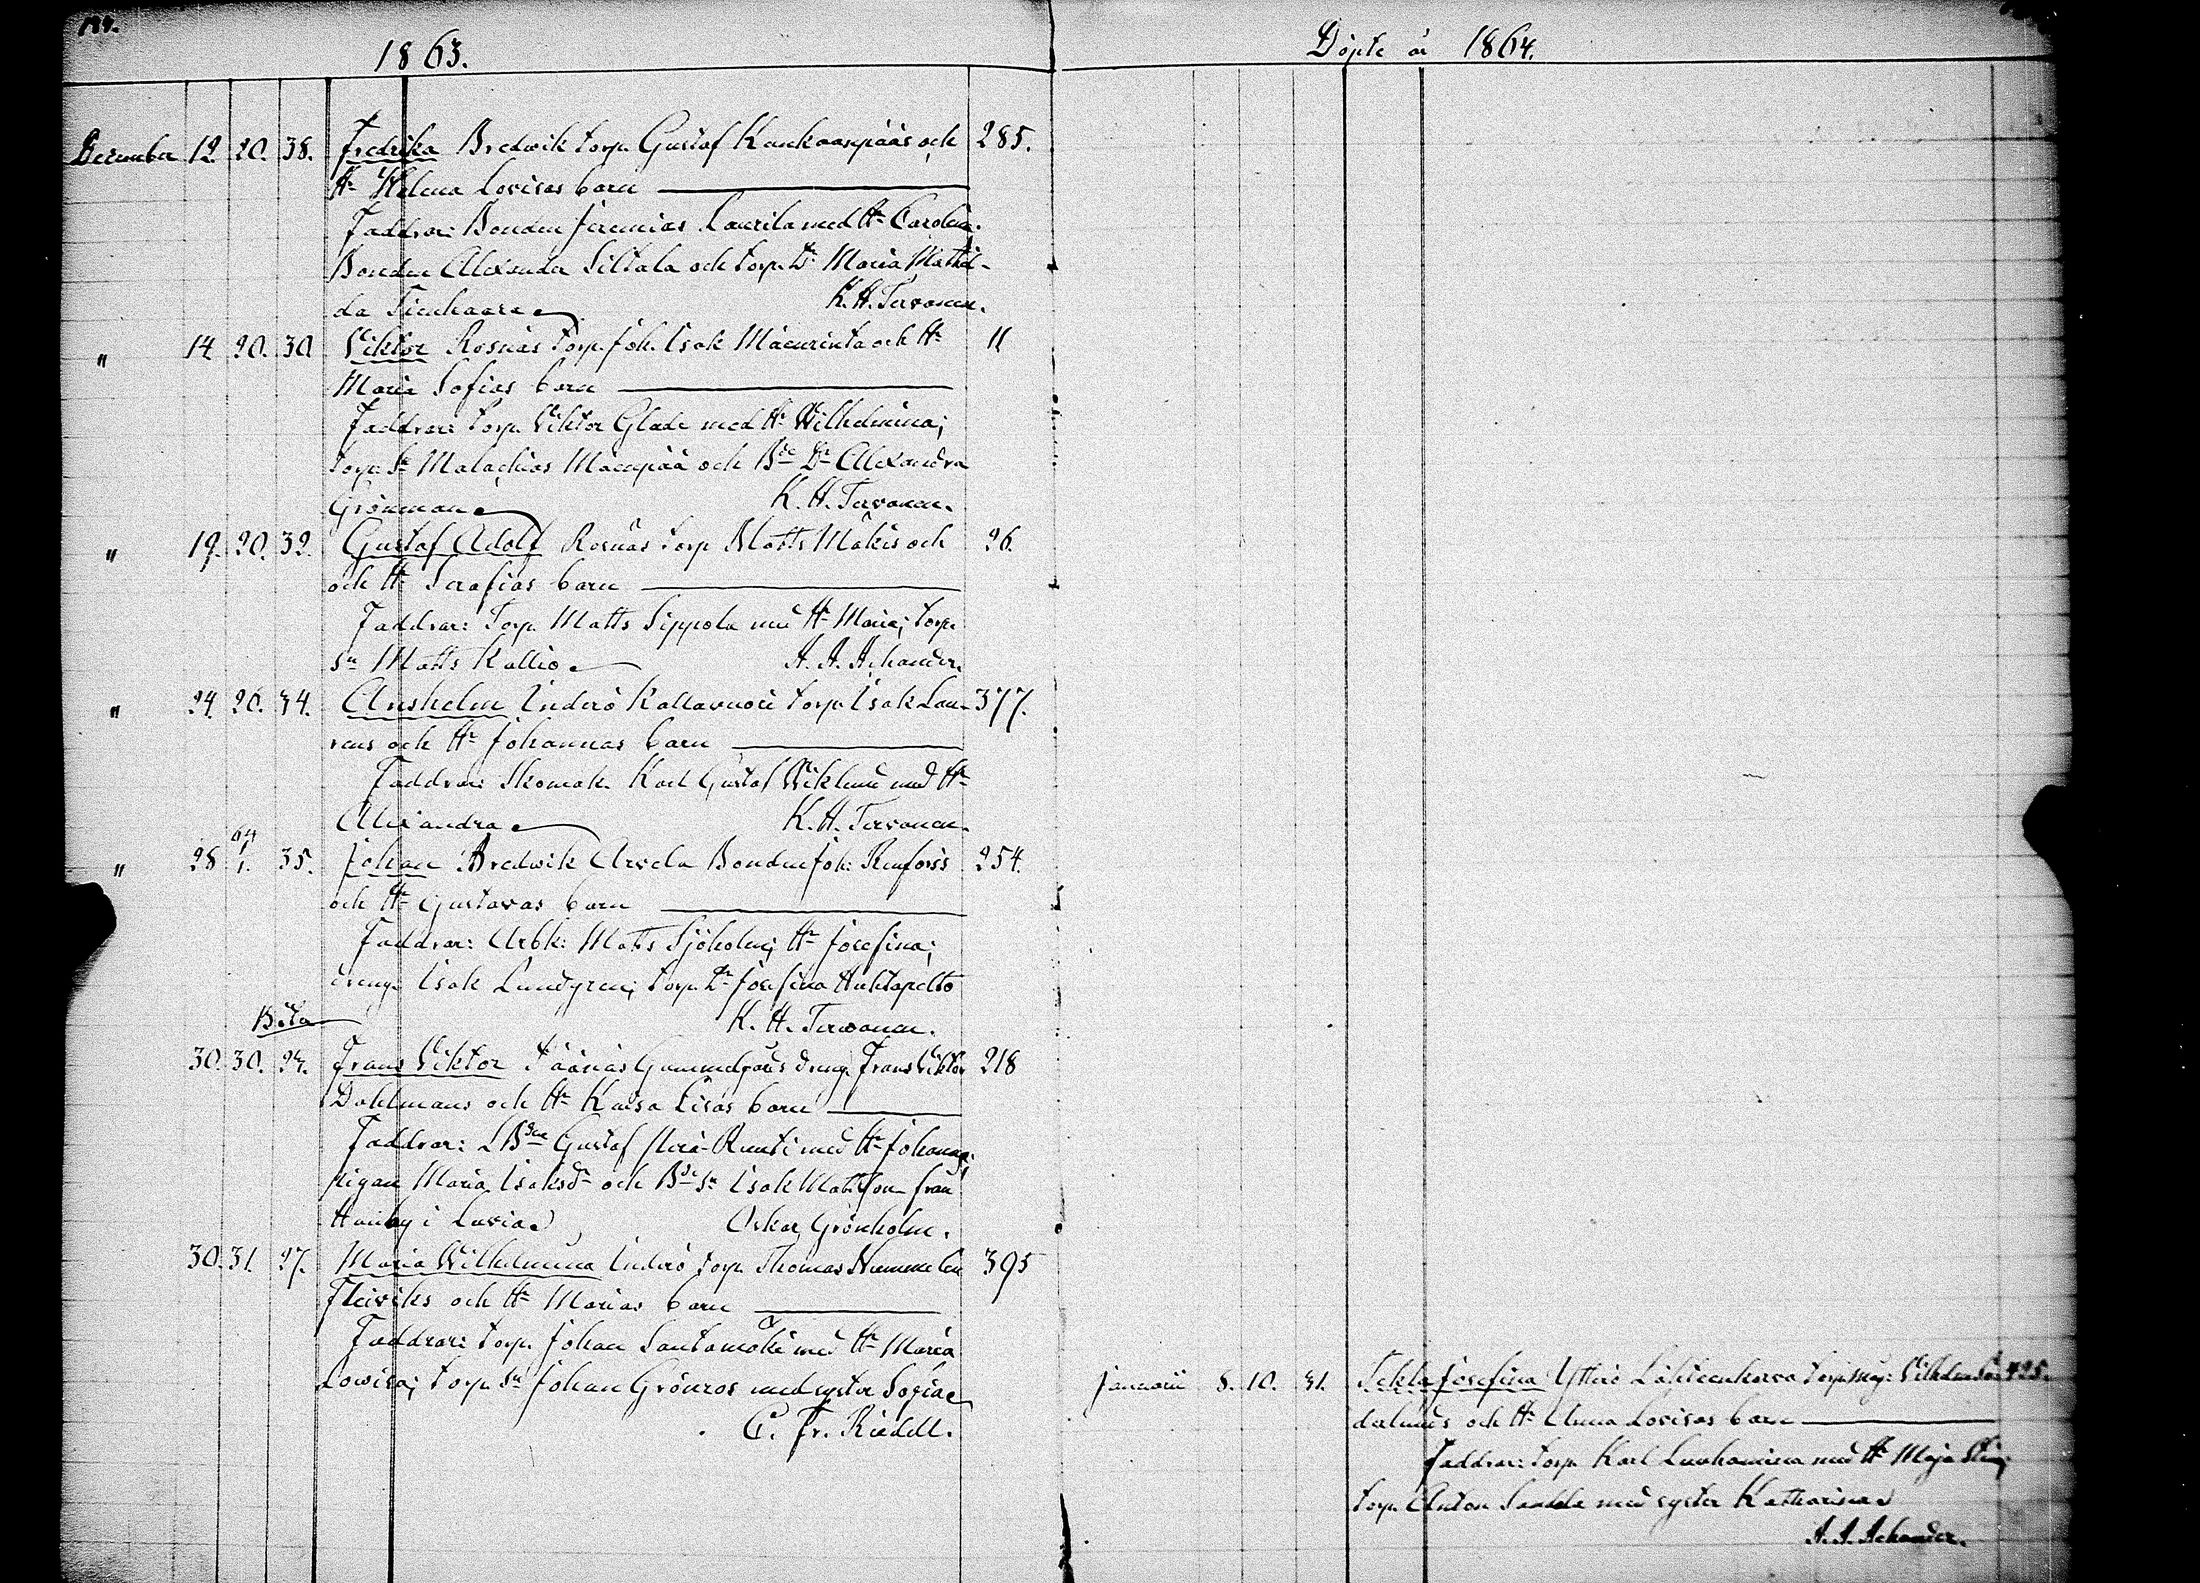 1863.
December 12. 20. 38. Fredrika Bredvik torp. Gustaf Kankaanpääs och 285.
Hu Helena Lovisas barn
Faddrar: Bonden Jeremias Laurila med Hu Carolina.
Bonden Alexander Siltala och torp. Dr Maria Mathil-
da Tienhaara K. H. Tervonen.
" 14 20. 30 Viktor Rosnäs torp. Joh. Isak Mäenrinta och Hu 11
Maria Sofias barn
Faddrar: torp. Viktor Glade med Hu Wilhelmina;
torp. Sn Malachias Mäenpää och Bde Dr Alexandra
Grönman K. H. Tervonen.
" 19. 20. 32. Gustaf Adolf Rosnäs torp Matts Mäkis och 26.
och Hu Serafias barn
Faddrar: Torp. Matts Sippola med Hu Maria; torp.
sn Matts Kallio A. A. Achander.
" 24. 26. 34. Anshelm Inderö Kallavuori torp. Isak Lau- 377.
rens och Hu Johannas barn
Faddrar: Skomak. Karl Gustaf Wiklund med Hu
Alexandra K. H. Tervonen.
" 28 64 1/1. 35. Johan Bredvik Arvela Bonden Joh. Renforss 254.
och Hu Gustavas barn
Faddrar: Arbk: Matts Sjöholm; Hu Josefina;
dreng. Isak Lundgren; torp. Dr Josefina Huhtapelto
K. H. Tervonen.
30. 30. 24. Frans Viktor Päänäs Gammelgårds dreng. Frans Viktor 218
Dahlmans och Hu Kaisa Lisas barn
Faddrar: LBden Gustaf Perä-Ruusti med Hu Johanna;
pigan Maria Isaksdr och Bde sn Isak Matsson från
Hanby i Luvia Oskar Grönholm.
30. 31. 27. Maria Wilhelmina Inderö torp. Thomas Nummelin 395
Fleiviks och Hu Marias barn
Faddrar: torp. Johan Santamäki med Hu Maria
Lowisa; torp. sn Johan Grönroos med syster Sofia
C. Fr. Riddell.
Döpte år 1864.
Januarii 8. 10. 31. Tekla Josefina Ytterö Lähteenkorva torp. måg: Vilhelm Sö- 425.
derlunds och Hu Anna Lovisas barn
Faddrar: torp. Karl Luuhamina med Hu Maja Stina;
torp. Anton Sandda med syster Katharina
A. A. Achander.